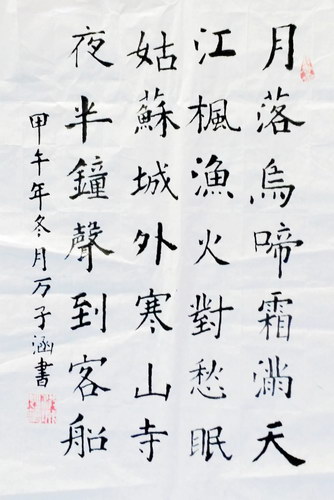 月落烏啼霜滿天
江楓漁火對愁眠
姑蘇城外寒山寺
夜半鐘聲到客船
甲午年冬月万子涵書